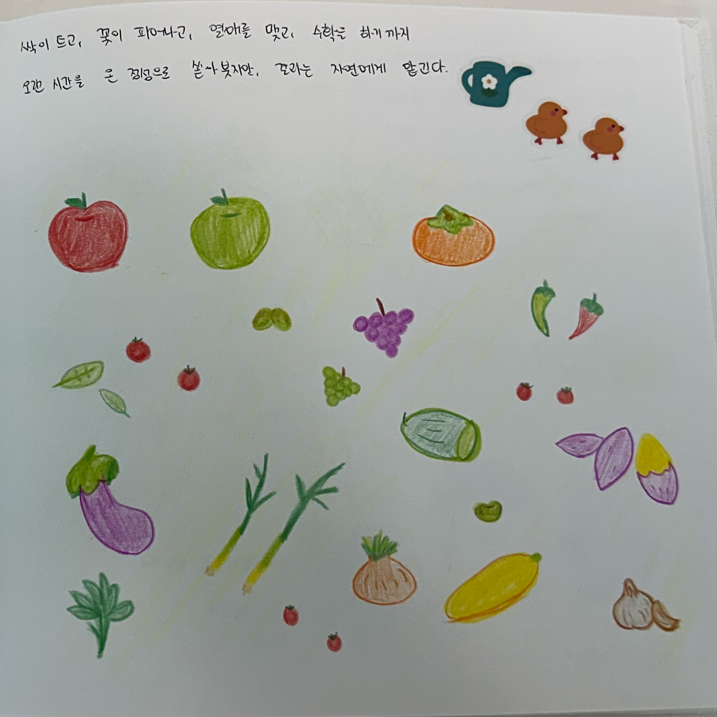 싹이 트고, 꽃이 피어나고, 열매를 맺고, 수확을 하기까지
오랜 시간을 온 정성으로 쏟아붓지만, 모라는 자연에게 맡긴다.